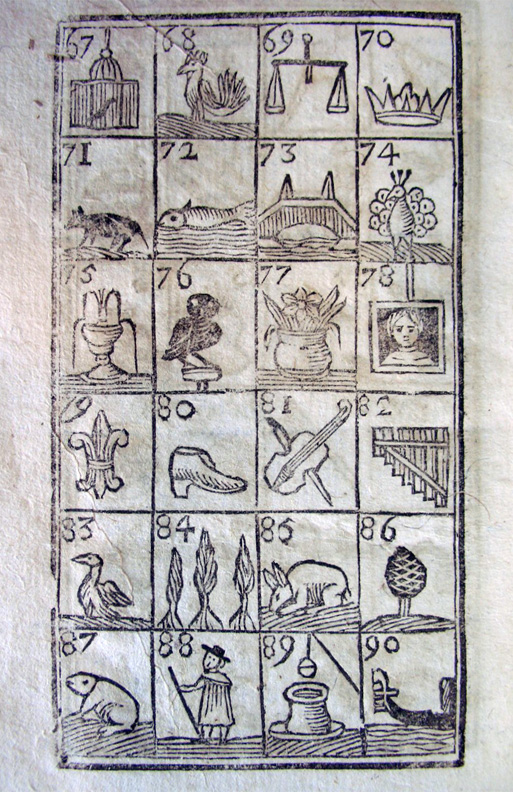 67 68 69 70
71 72 73 74
75 76 77 78
80 81 82
83 84 85 86
87 88 89 90